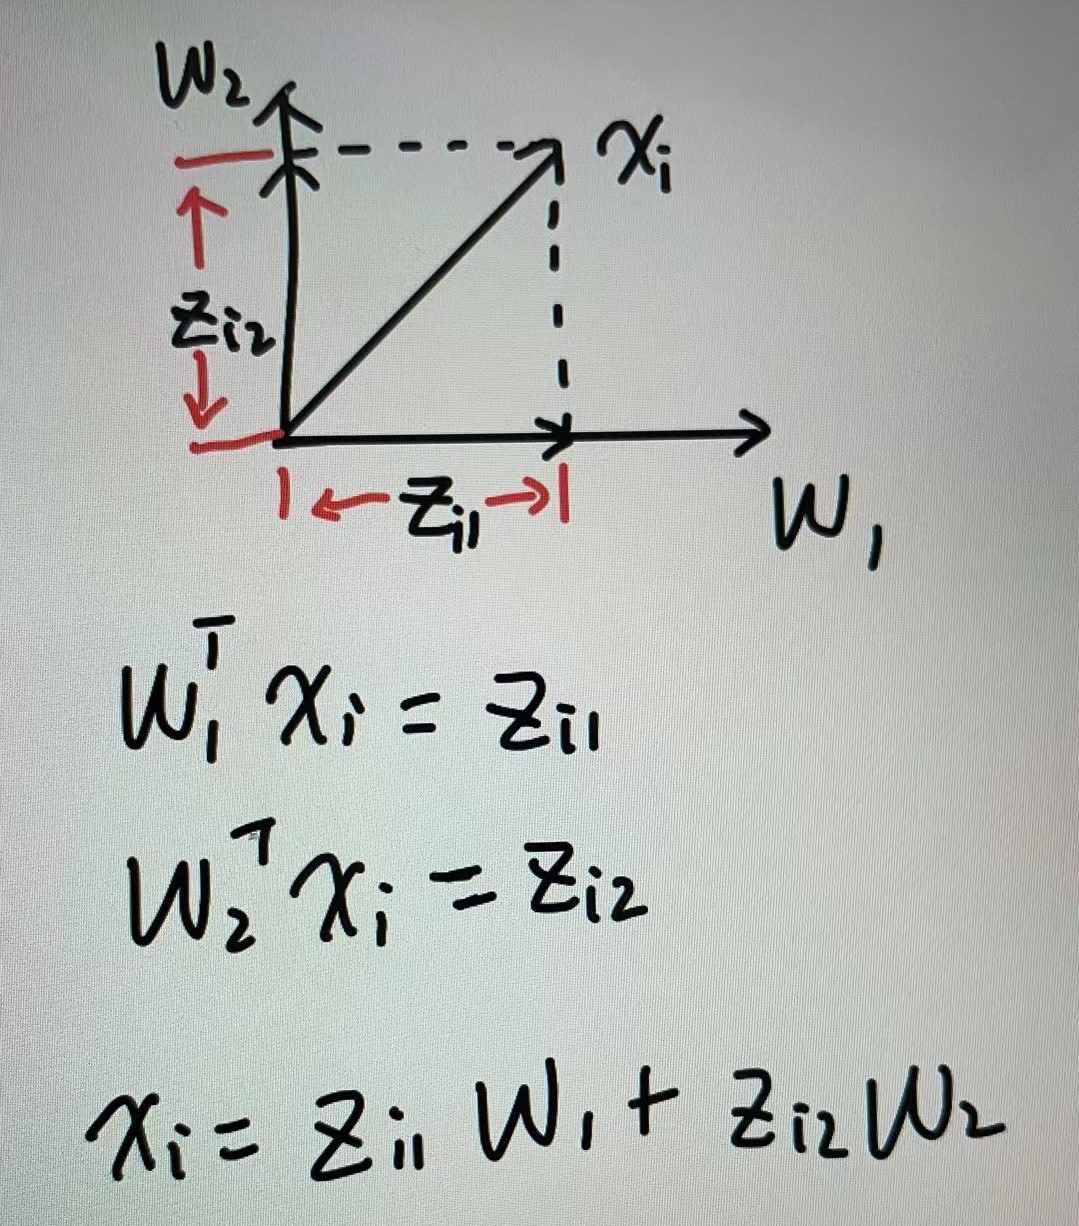 W₂
xᵢ
zᵢ₂
zᵢ₁
W₁
W₁ᵀ xᵢ = zᵢ₁
W₂ᵀ xᵢ = zᵢ₂
xᵢ = zᵢ₁ W₁ + zᵢ₂ W₂